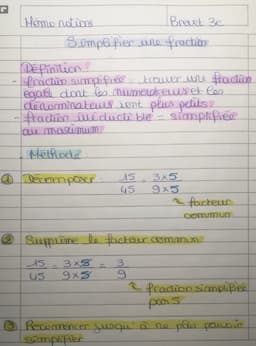 Mémo notions Brevet 3e
Simplifier une fraction
Définition :
- fraction simplifiée = trouver une fraction
égale dont les numérateurs et les
dénominateurs sont plus petits.
- fraction irréductible = simplifiée
au maximum
Méthode
① Décomposer 15/45 = 3×5/9×5
facteur
commun
② Supprime le facteur commun
15/45 = 3×5/9×5 = 3/9
fraction simplifiée
par 5
③ Recommencer jusqu'à ne plus pouvoir
simplifier